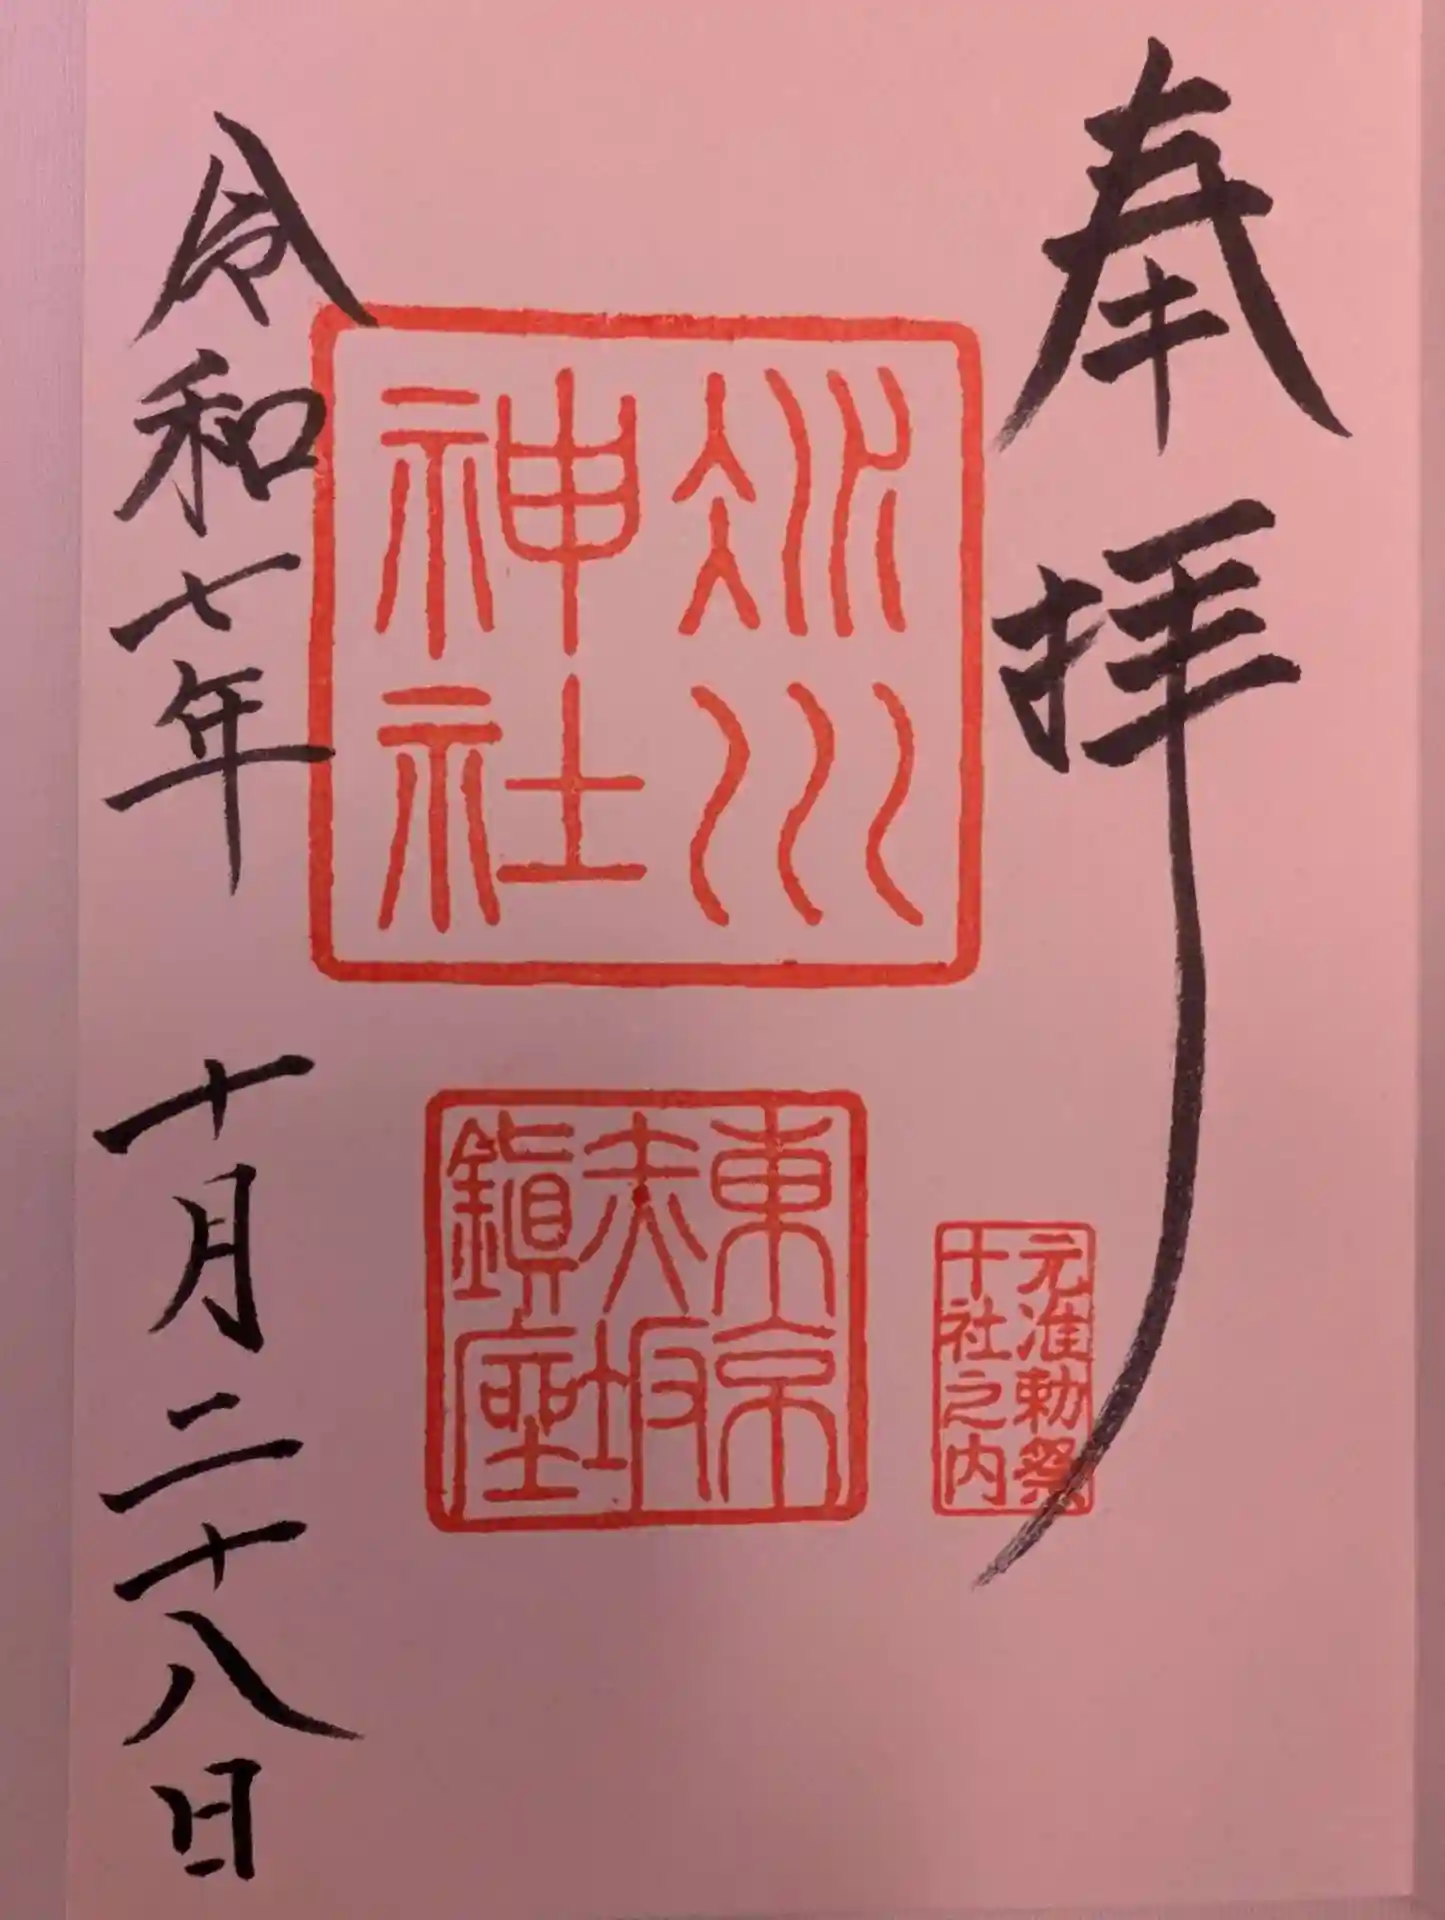 奉拝
元准勅祭
十社之内
氷川
神社
東京
赤坂
鎮座
令和七年 十月二十八日